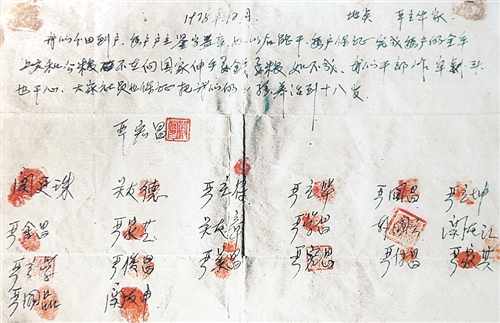 1978年12月. 地点 严立华家
我们分田到户、每户户主签字盖章、如以后能干、每户保证完成每户的全年
上交和公粮、不在向国家伸手要钱要粮、如不成、我们干部作牢杀头
也干心、大家社员也保证把我们的小孩养活到十八岁
严宏昌
关廷珠 关友德 严立符 严立华 严国昌 严立坤
严金昌 严家芝 关友章 严学昌 韩国云 关友江
严立学 严俊昌 严美昌 严宏昌 严付昌 严家其
严国品 关友申